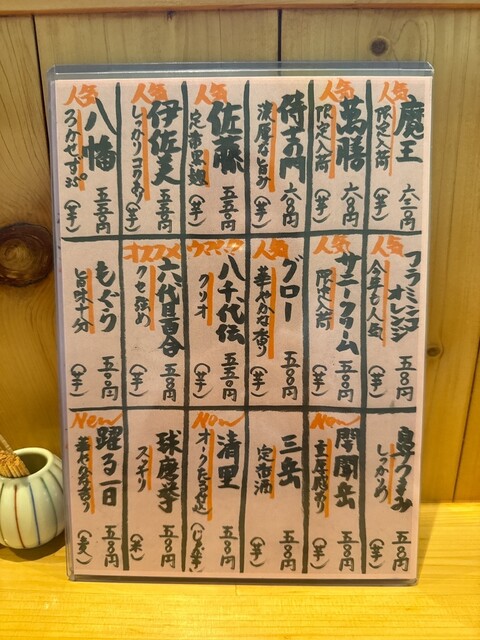 人気
魔王
限定入荷
六三〇円
(芋)
人気
萬膳
限定入荷
六〇〇円
(芋)
侍士の門
濃厚な旨み
六〇〇円
(芋)
人気
佐藤
定番黒麹
五五〇円
(芋)
人気
伊佐美
しっかりコクあり
五五〇円
(芋)
人気
八幡
ろかせず35°
五五〇円
(芋)
人気
フラミンゴオレンジ
今年も人気
五五〇円
(芋)
人気
サニークリーム
限定入荷
五五〇円
(芋)
人気
ブロー
華やかな香り
五〇〇円
(芋)
八千代伝
クリオ
五五〇円
(芋)
オススメ
六代目百合
クセ強め
五五〇円
(芋)
もぐら
旨味十分
五五〇円
(芋)
鼻つまみ
しっかりめ
五五〇円
(芋)
New
開聞岳
重厚感あり
五五〇円
(芋)
三岳
定番酒
五〇〇円
(芋)
New
清里
五〇〇円
(じゃが芋)
球磨拳
スッキリ
五五〇円
(米)
New
躍る一日
華やかな香り
五五〇円
(麦)